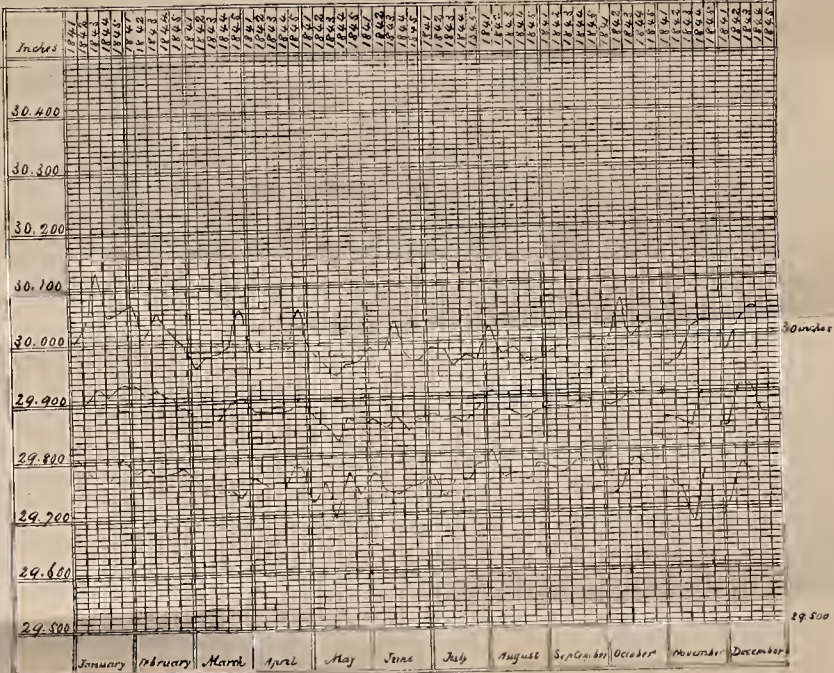 Inches 1841 1842 1843 1844 1845 1841 1842 1843 1844 1845 1841 1842 1843 1844 1845 1841 1842 1843 1844 1845 1841 1842 1843 1844 1845 1841 1842 1843 1844 1845 1841 1842 1843 1844 1845 1841 1842 1843 1844 1845 1841 1842 1843 1844 1845 1841 1842 1843 1844 1845 1841 1842 1843 1844 1845 1841 1842 1843 1844 1845
30.400
30.300
30.200
30.100
30.000 30 inches
29.900
29.800
29.700
29.600
29.500 29.500
January February March April May June July August September October November December